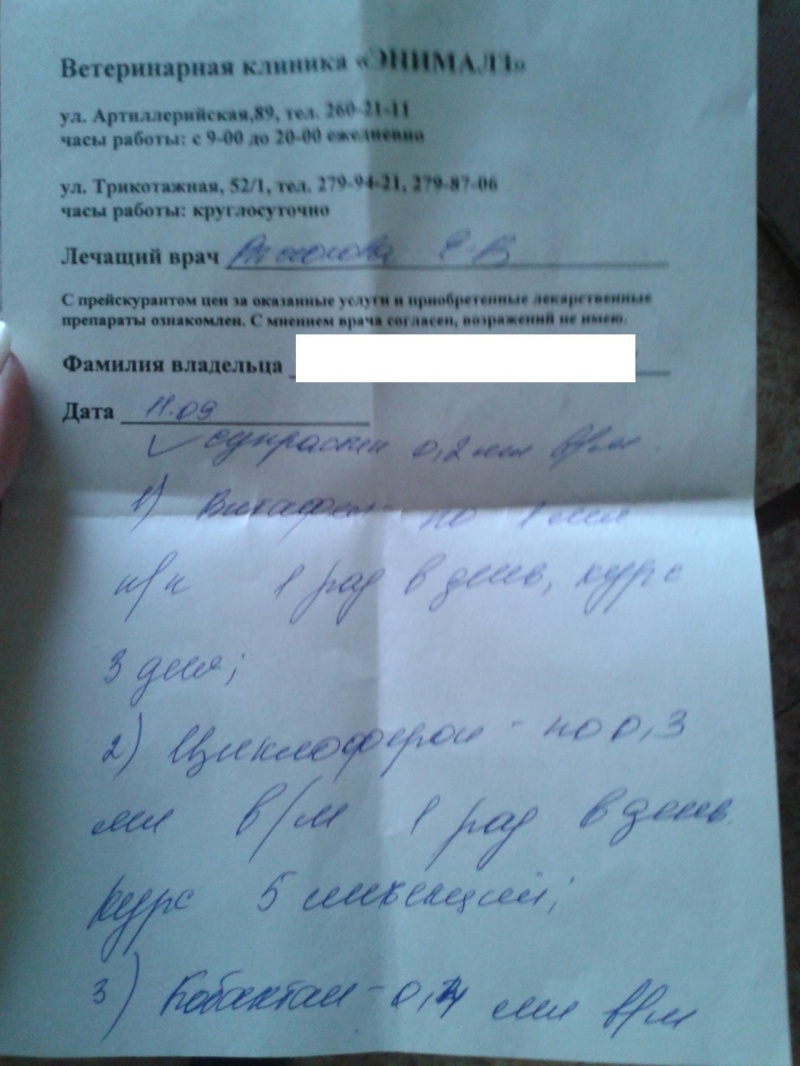 Ветеринарная клиника «ЭНИМАЛЗ»
ул. Артиллерийская,89, тел. 260-21-11
часы работы: с 9-00 до 20-00 ежедневно
ул. Трикотажная, 52/1, тел. 279-94-21, 279-87-06
часы работы: круглосуточно
Лечащий врач
С прейскурантом цен за оказанные услуги и приобретенные лекарственные
препараты ознакомлен. С мнением врача согласен, возражений не имею.
Фамилия владельца
Дата 11.09
супрастин 0,2 мл в/м
1) Витафел - по 1 мл
п/к 1 раз в день, курс
3 дня;
2) Циклоферон - по 0,3
мл в/м 1 раз в день
курс 5 инъекций;
3) Кобактан - мл в/м